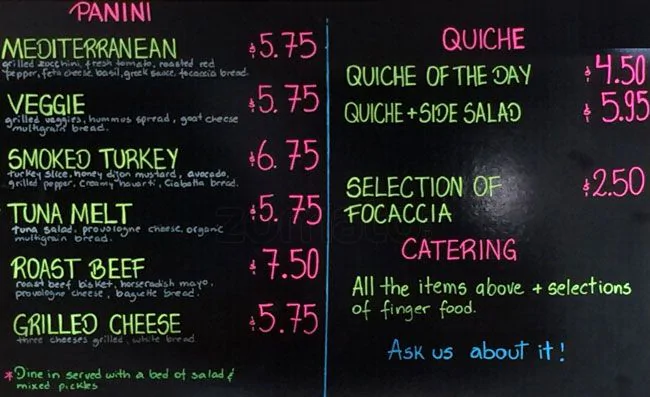 PANINI
MEDITERRANEAN $5.75
grilled zocchini, fresh tomato, roasted red
pepper, feta cheese, basil, greek sauce, focaccia bread.
VEGGIE $5.75
grilled veggies, hummus spread, goat cheese
multigrain bread.
SMOKED TURKEY $6.75
turkey slice, honey dijon mustard, avocado,
grilled pepper, creamy havarti, Ciabatta bread.
TUNA MELT $5.75
tuna salad, provologne cheese, organic
multigrain bread.
ROAST BEEF $7.50
roast beef bisket, horseradish mayo,
provologne cheese, baguette bread.
GRILLED CHEESE $5.75
three cheeses grilled, white bread
*Dine in served with a bed of salad &
mixed pickles
QUICHE
QUICHE OF THE DAY $4.50
QUICHE + SIDE SALAD $5.95
SELECTION OF $2.50
FOCACCIA
CATERING
All the items above + selections
of finger food.
Ask us about it!